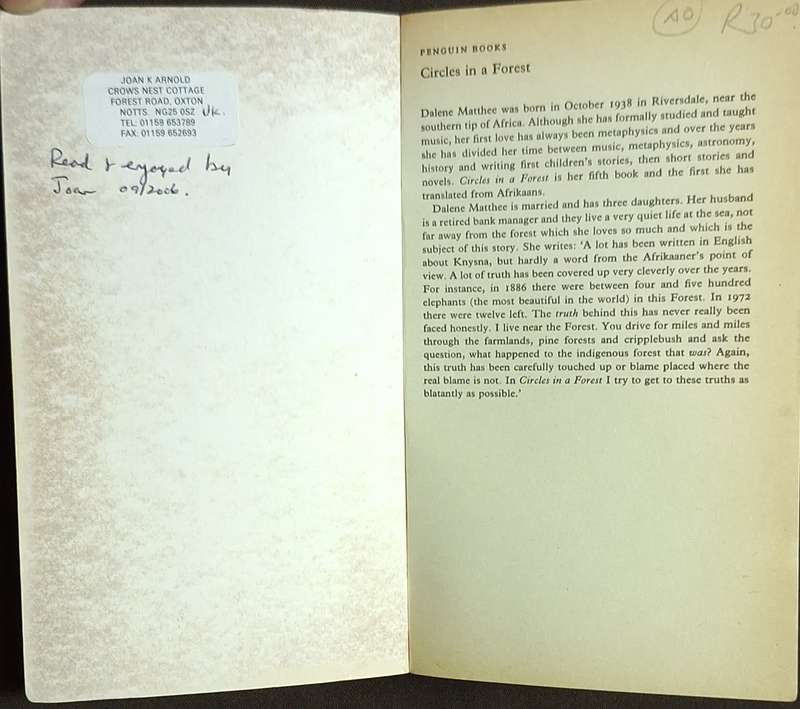 JOAN K ARNOLD
CROWS NEST COTTAGE
FOREST ROAD, OXTON
NOTTS. NG25 0SZ UK.
TEL: 01159 653789
FAX: 01159 652693
Read & enjoyed by
Joan 09/2006.
AO R30-00
PENGUIN BOOKS
Circles in a Forest
Dalene Matthee was born in October 1938 in Riversdale, near the
southern tip of Africa. Although she has formally studied and taught
music, her first love has always been metaphysics and over the years
she has divided her time between music, metaphysics, astronomy,
history and writing first children's stories, then short stories and
novels. Circles in a Forest is her fifth book and the first she has
translated from Afrikaans.
Dalene Matthee is married and has three daughters. Her husband
is a retired bank manager and they live a very quiet life at the sea, not
far away from the forest which she loves so much and which is the
subject of this story. She writes: 'A lot has been written in English
about Knysna, but hardly a word from the Afrikaaner's point of
view. A lot of truth has been covered up very cleverly over the years.
For instance, in 1886 there were between four and five hundred
elephants (the most beautiful in the world) in this Forest. In 1972
there were twelve left. The truth behind this has never really been
faced honestly. I live near the Forest. You drive for miles and miles
through the farmlands, pine forests and cripplebush and ask the
question, what happened to the indigenous forest that was? Again,
this truth has been carefully touched up or blame placed where the
real blame is not. In Circles in a Forest I try to get to these truths as
blatantly as possible.'